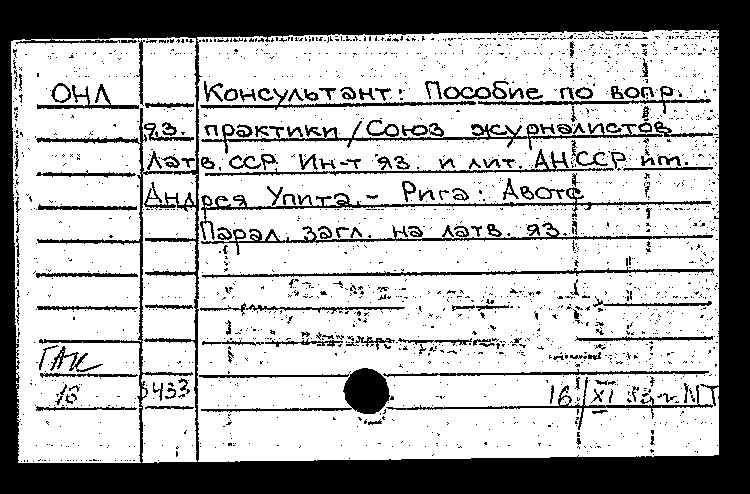 ОНЛ Консультант: Пособие по вопр.
яз. практики / Союз журналистов
Латв. ССР, Ин-т яз. и лит. АН ССР им.
Андрея Упита. - Рига: Авотс,
Парал. загл. на латв. яз.
ГАК
16 3433 16/XI 83 г. МП